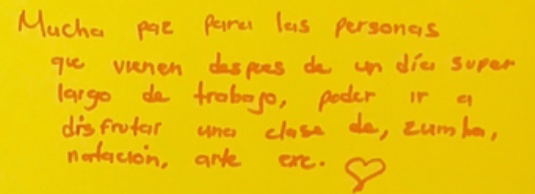 Mucha paz para las personas
que vienen despues de un día super
largo de trabajo, poder ir a
disfrutar una clase de, zumba,
natación, arte etc.